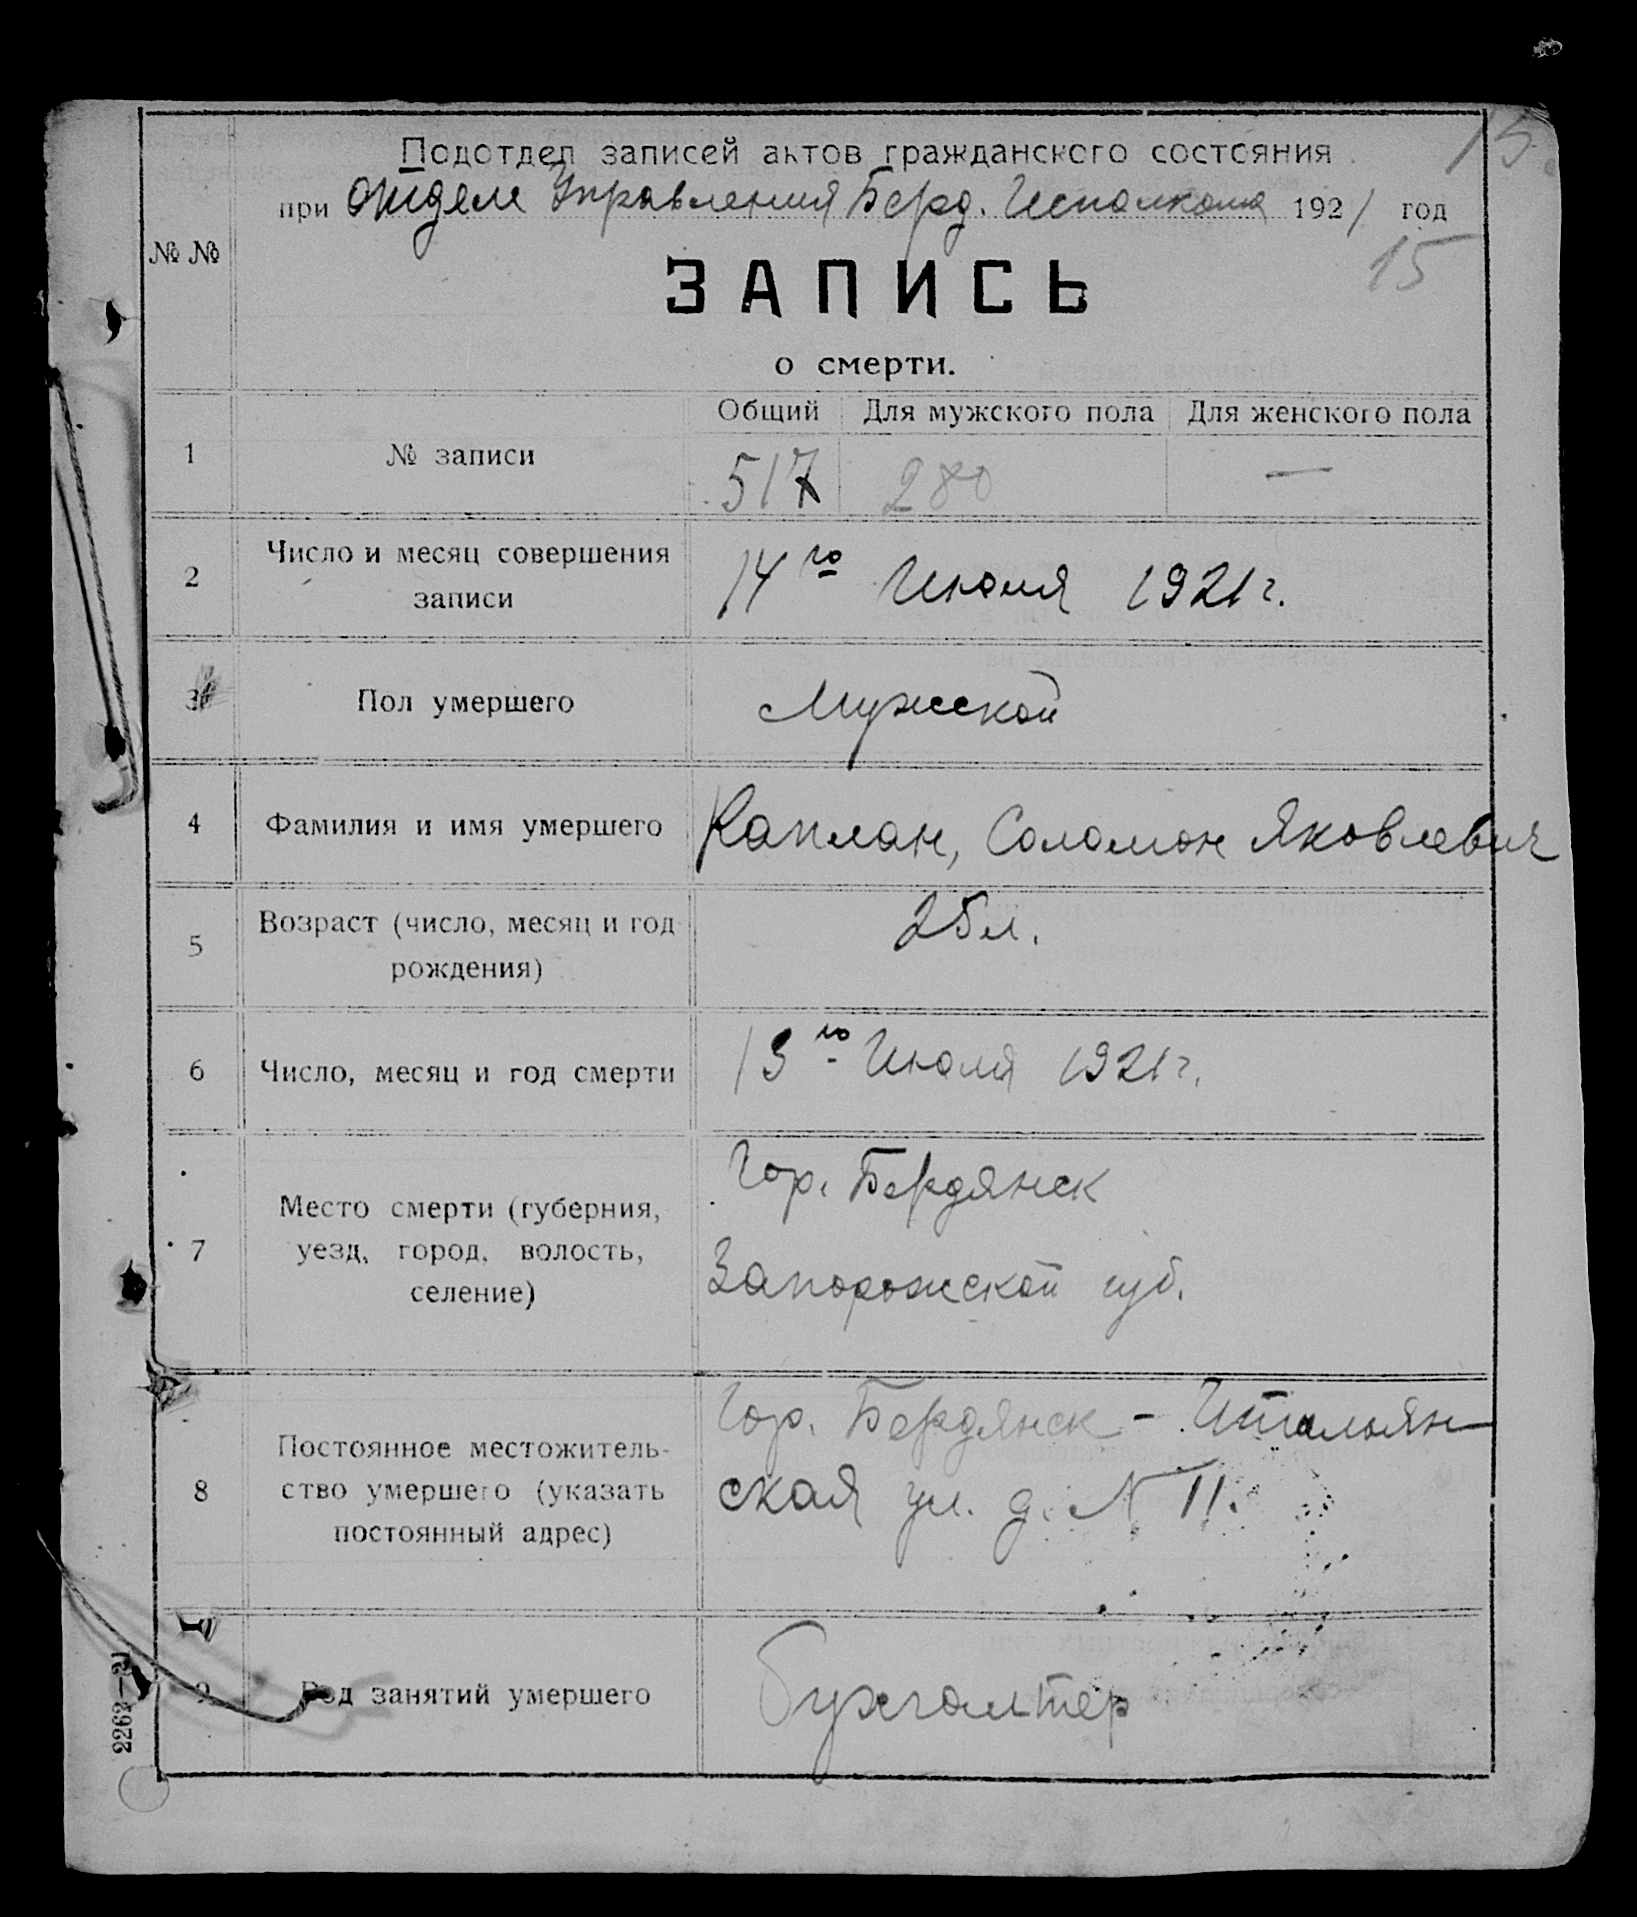 15
Подотдел записей актов гражданского состояния
при отделе Управления Берд. Исполкома 1921 год
15
№ №
ЗАПИСЬ
о смерти.
1 № записи Общий Для мужского пола Для женского пола
517 280 —
2 Число и месяц совершения записи
14го Июля 1921 г.
3 Пол умершего
Мужской
4 Фамилия и имя умершего
Каплан, Соломон Яковлевич
5 Возраст (число, месяц и год рождения)
25 л.
6 Число, месяц и год смерти
13го Июля 1921 г.
7 Место смерти (губерния,
уезд, город, волость,
селение)
Гор. Бердянск
Запорожской губ.
8 Постоянное местожитель-
ство умершего (указать
постоянный адрес)
Гор. Бердянск - Итальян-
ская ул. д. № 11.
9 Род занятий умершего
Бухгалтер
2262—21